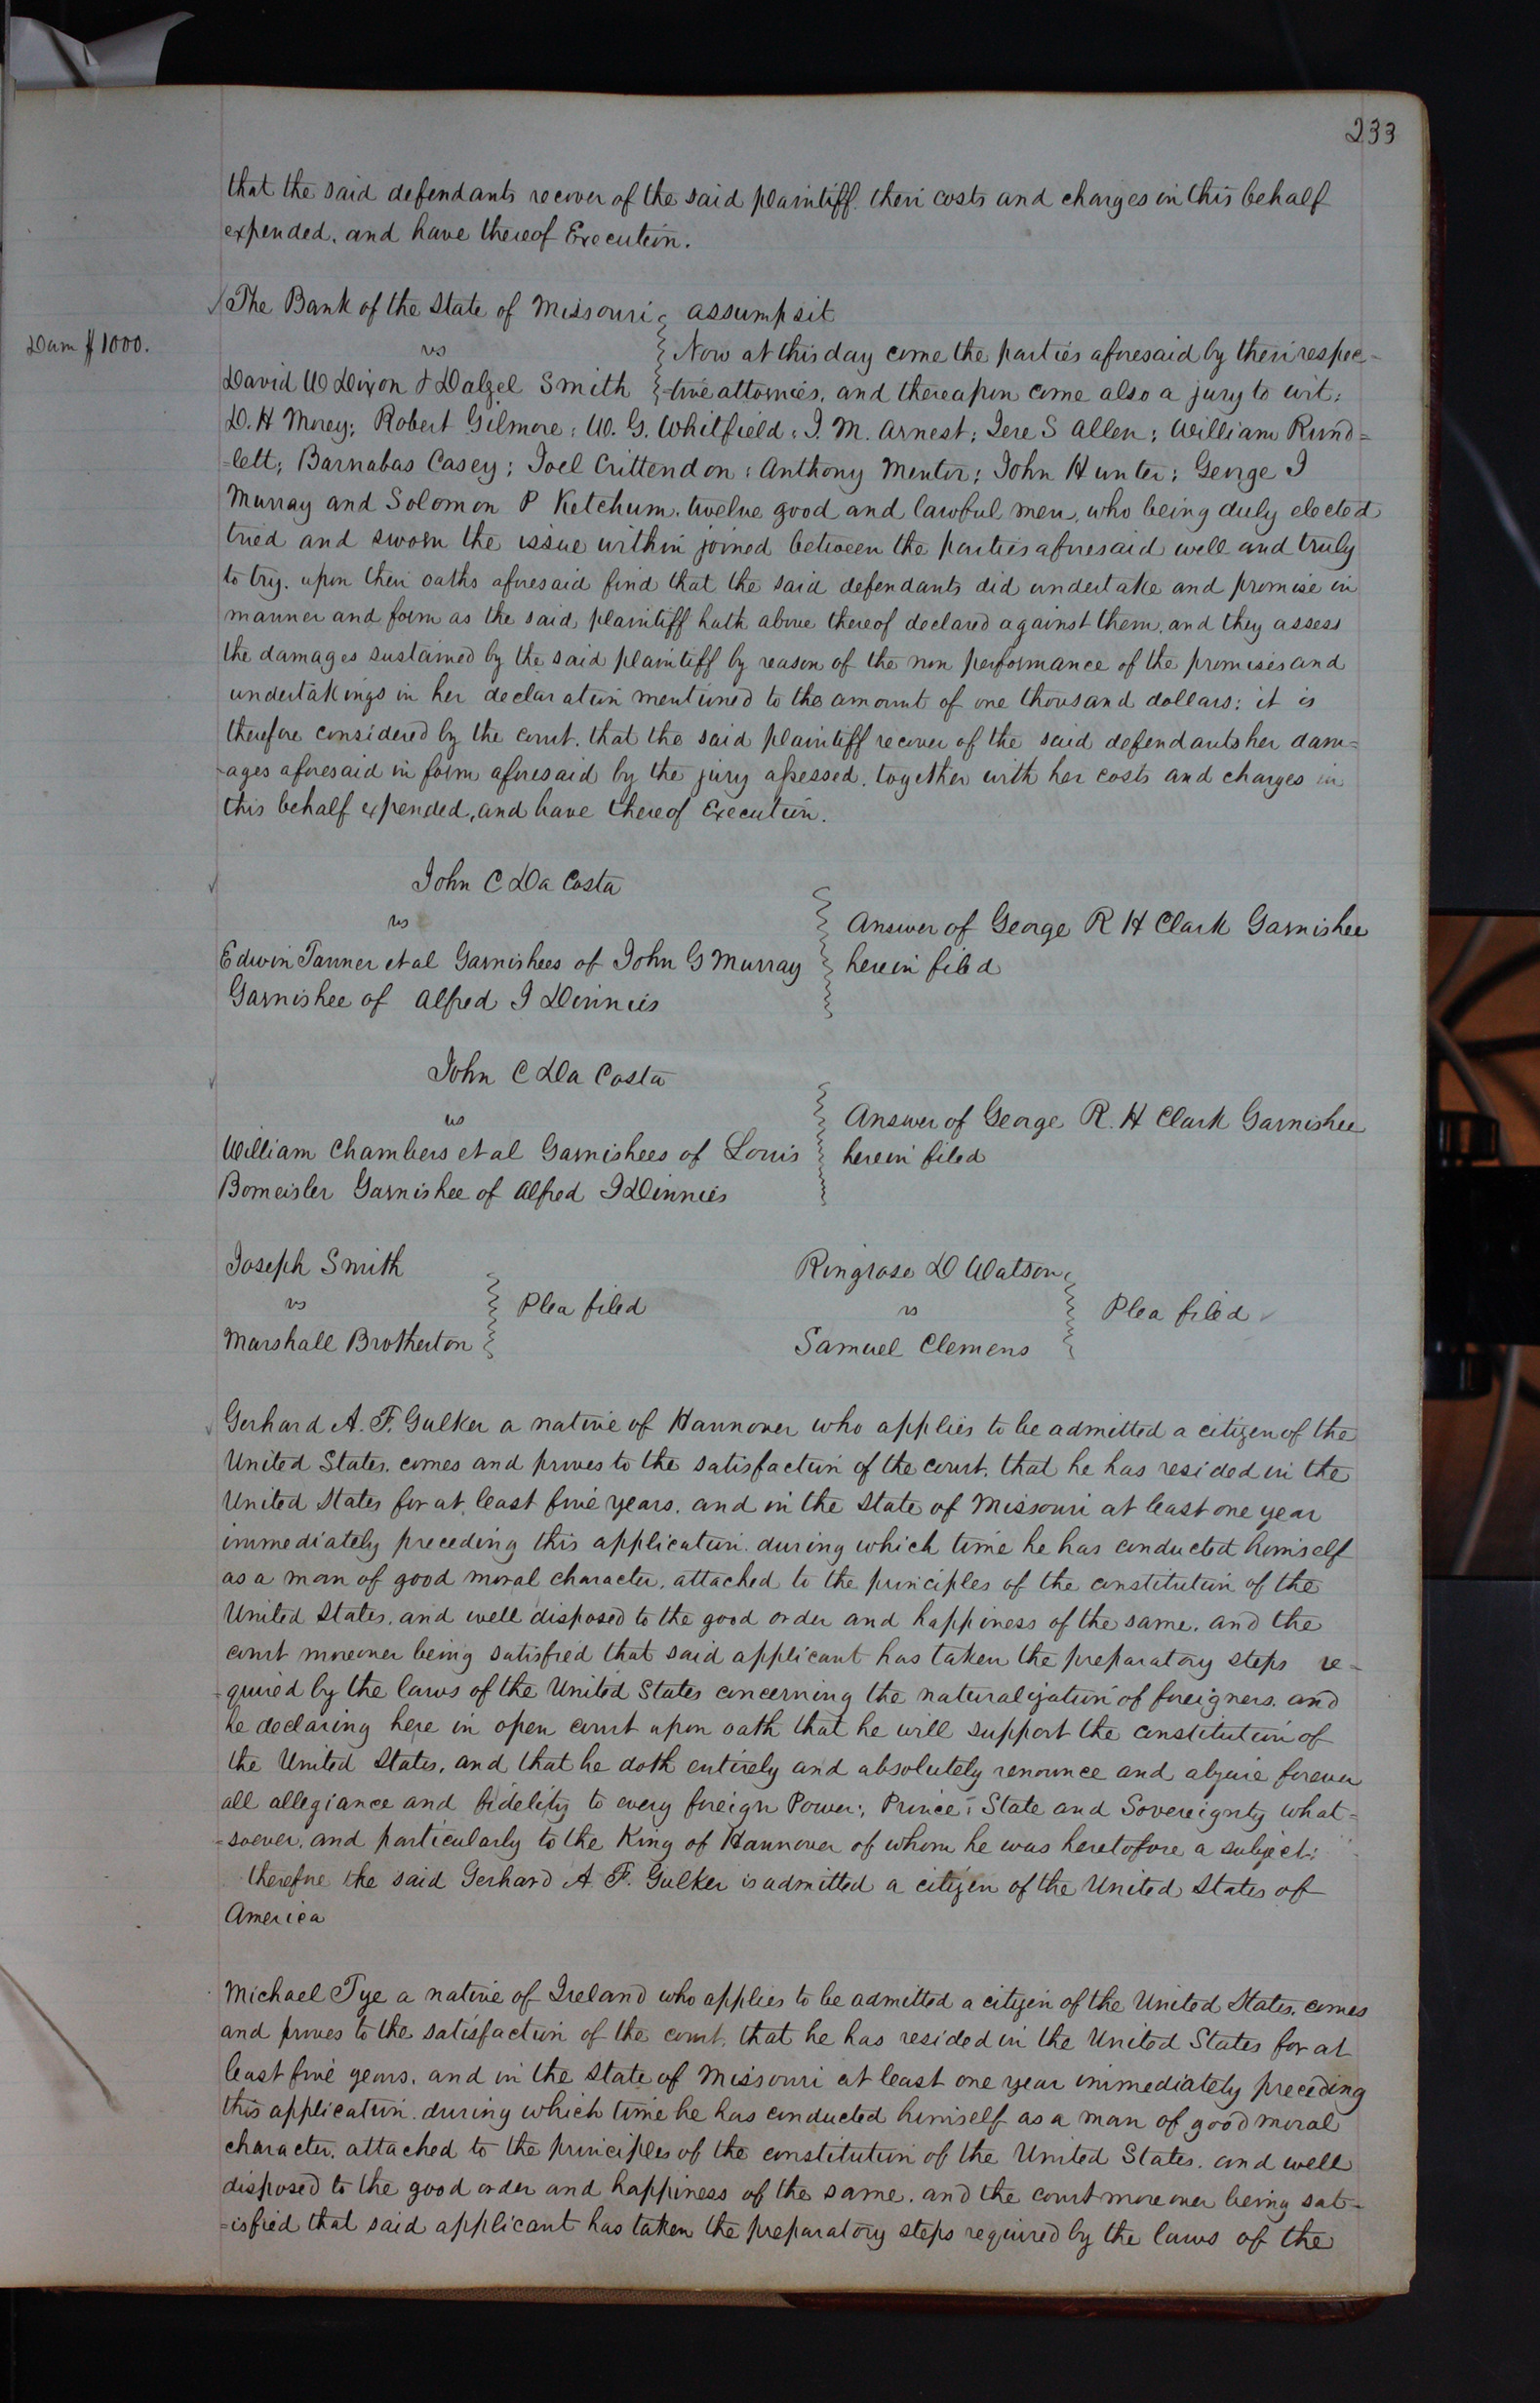 233
that the said defendants recover of the said plaintiff their costs and charges in this behalf
expended, and have thereof Execution.
The Bank of the State of Missouri assumpsit
Dam $1000.
vs Now at this day come the parties aforesaid by their respec-
David W Dixon & Dalzel Smith -tive attornies, and thereupon come also a jury to wit:
D. H Morey; Robert Gilmore; W. G. Whitfield; J. M. Arnest; Jere S Allen; William Rund=
=lett; Barnabas Casey; Joel Crittendon; Anthony Mentor; John Hunter; George J
Murray and Solomon P Ketchum, twelve good and lawful men, who being duly elected
tried and sworn the issue within joined between the parties aforesaid well and truly
to try. upon their oaths aforesaid find that the said defendants did undertake and promise in
manner and form as the said plaintiff hath above thereof declared against them, and they assess
the damages sustained by the said plaintiff by reason of the non performance of the promises and
undertakings in her declaration mentioned to the amount of one thousand dollars; it is
therefore considered by the court, that the said plaintiff recover of the said defendants her dam=
-ages aforesaid in form aforesaid by the jury assessed, together with her costs and charges in
this behalf expended, and have thereof Execution.
John C Da Costa
vs
Edwin Tanner et al Garnishees of John G Murray
Garnishee of Alfred J Dinnies
Answer of George R H Clark Garnishee
herein filed
John C Da Costa
vs
William Chambers et al Garnishees of Louis
Bomeisler Garnishee of Alfred J Dinnies
Answer of George R. H Clark Garnishee
herein filed
Joseph Smith
vs
Marshall Brotherton
Plea filed
Ringrose D Watson
vs
Samuel Clemens
Plea filed
Gerhard A. F. Gulker a native of Hannover who applies to be admitted a citizen of the
United States, comes and proves to the satisfaction of the court, that he has resided in the
United States for at least five years, and in the State of Missouri at least one year
immediately preceding this application, during which time he has conducted himself
as a man of good moral character, attached to the principles of the constitution of the
United States, and well disposed to the good order and happiness of the same, and the
court moreover being satisfied that said applicant has taken the preparatory steps re=
-quired by the laws of the United States concerning the naturalization of foreigners, and
he declaring here in open court upon oath that he will support the constitution of
the United States, and that he doth entirely and absolutely renounce and abjure forever
all allegiance and fidelity to every foreign Power, Prince, State and Sovereignty what=
=soever, and particularly to the King of Hannover of whom he was heretofore a subject:
therefore the said Gerhard A. F. Gulker is admitted a citizen of the United States of
America
Michael Tye a native of Ireland who applies to be admitted a citizen of the United States, comes
and proves to the satisfaction of the court, that he has resided in the United States for at
least five years, and in the State of Missouri at least one year immediately preceding
this application, during which time he has conducted himself as a man of good moral
character, attached to the principles of the constitution of the United States, and well
disposed to the good order and happiness of the same, and the court moreover being sat=
=isfied that said applicant has taken the preparatory steps required by the laws of the